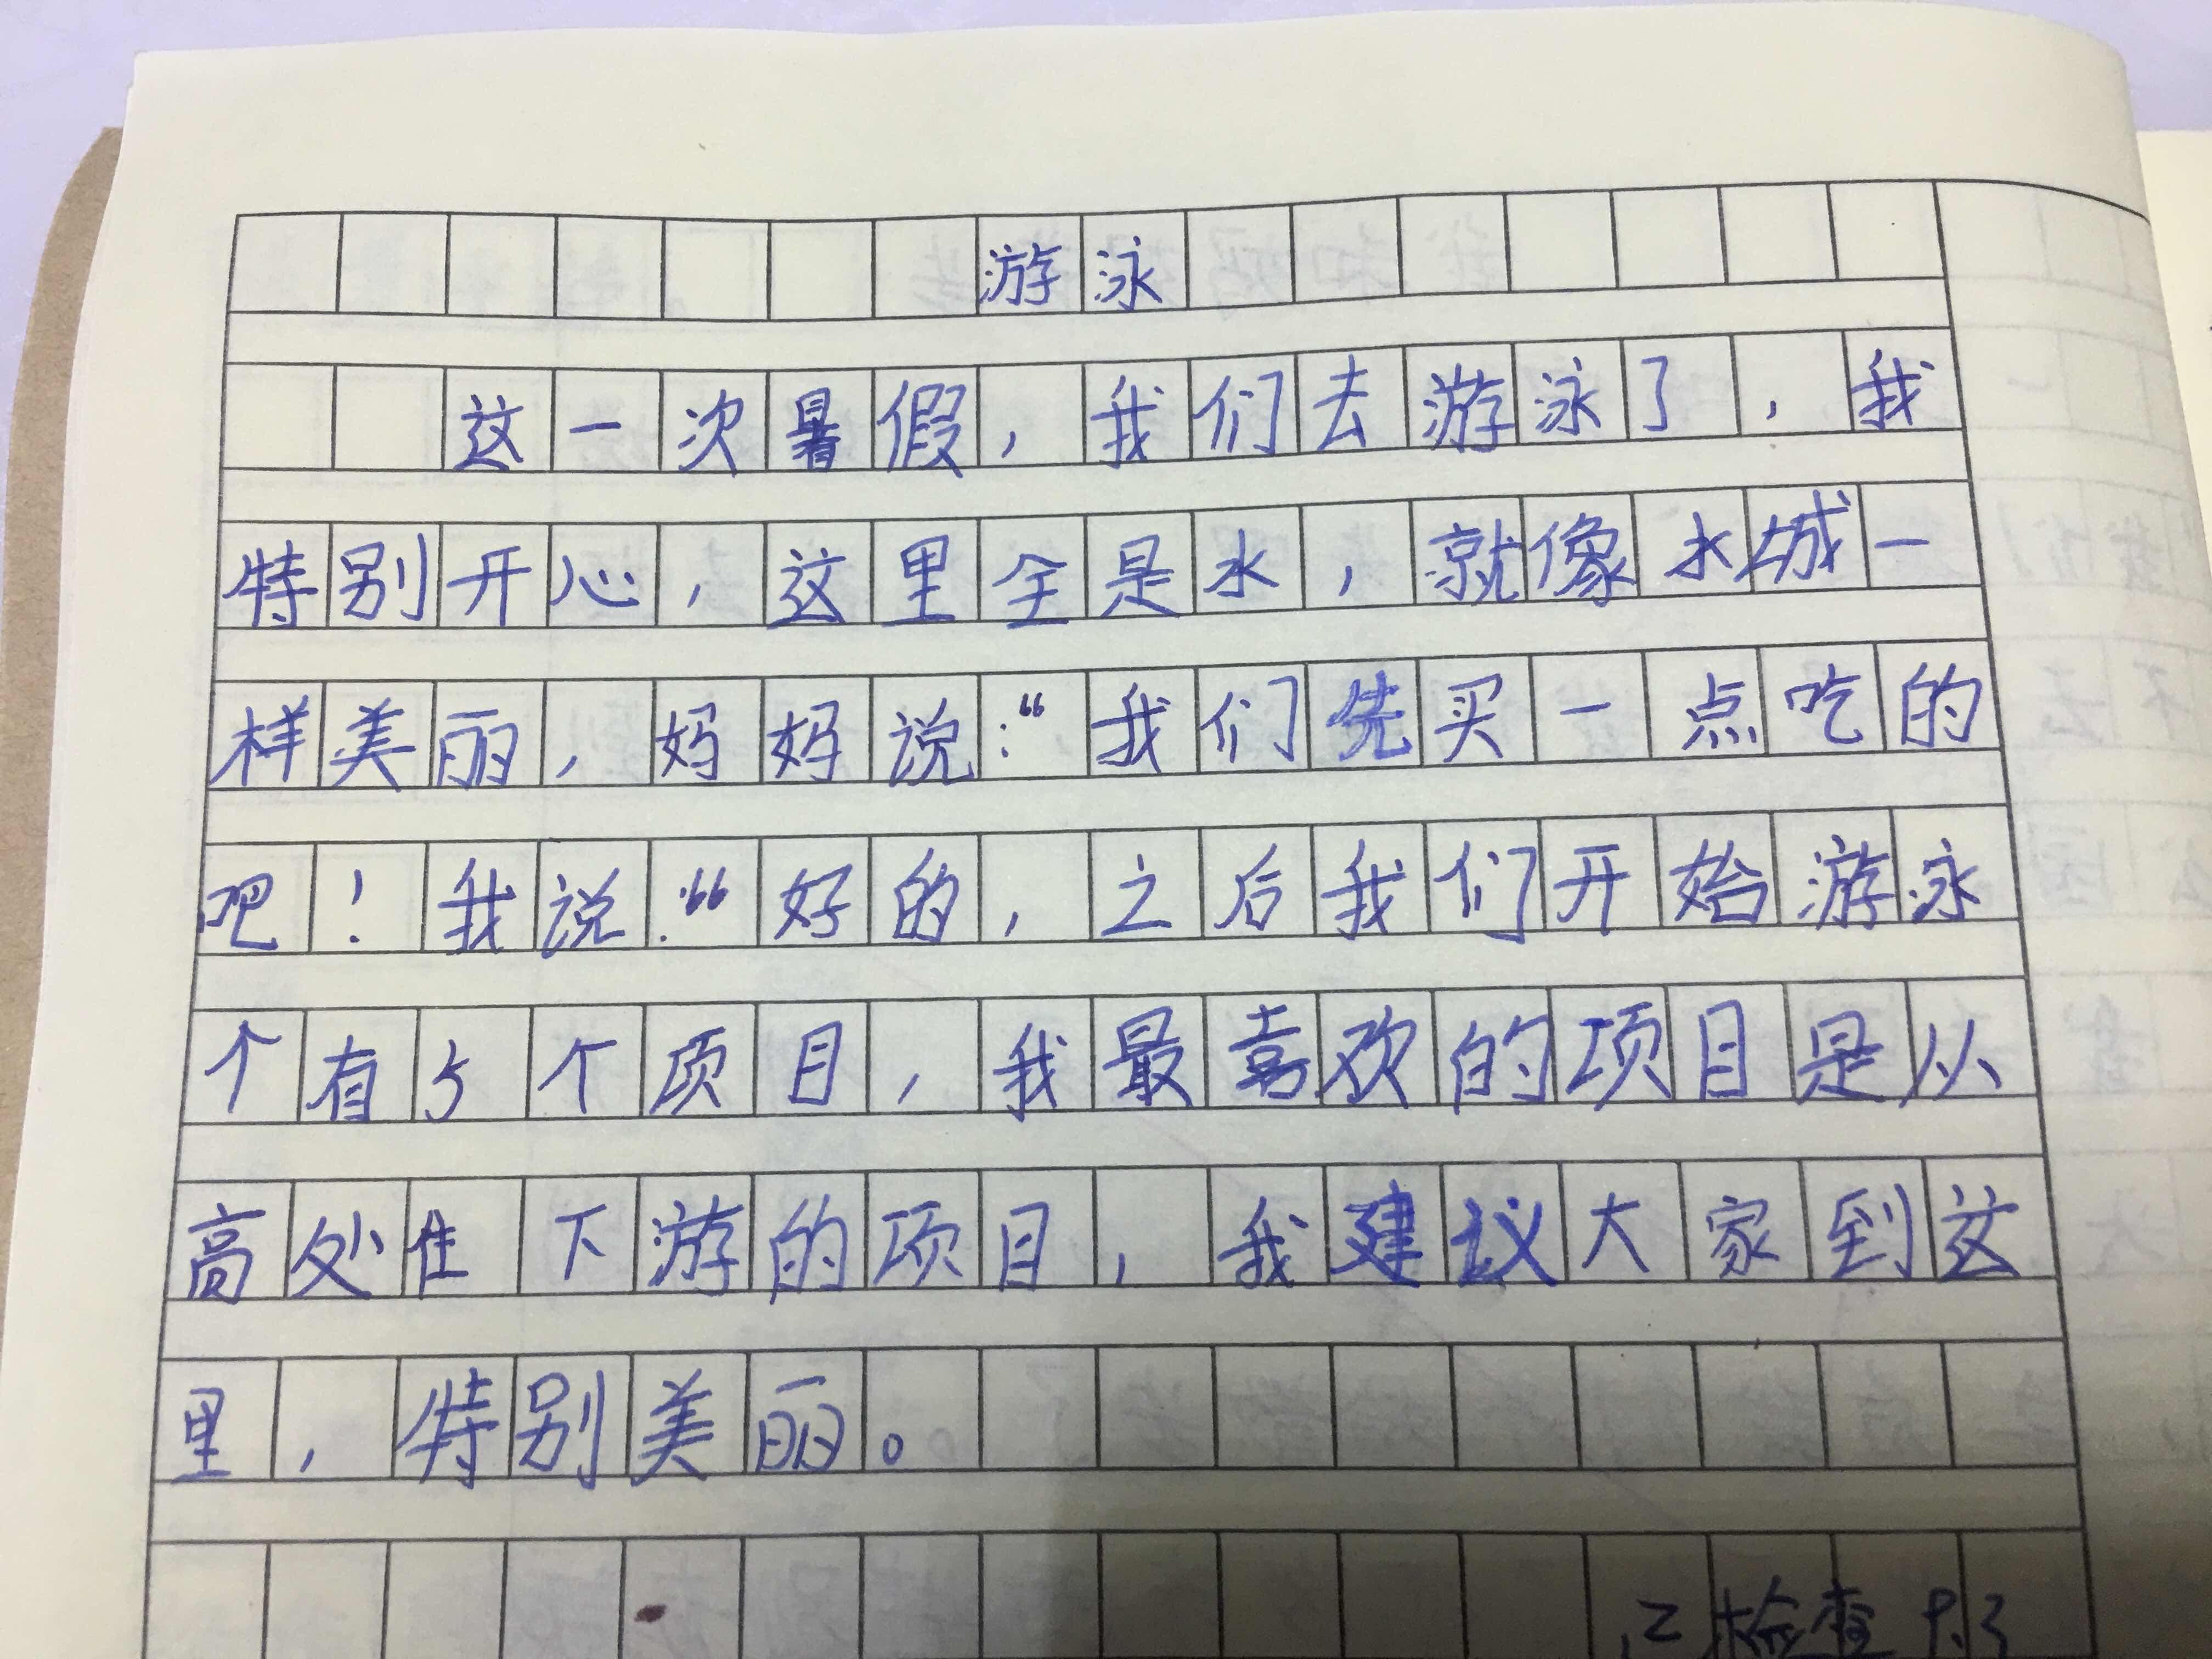 游泳
这一次暑假,我们去游泳了,我
特别开心,这里全是水,就像水城一
样美丽,妈妈说:“我们先买一点吃的
吧!我说:“好的,之后我们开始游泳
个有5个项目,我最喜欢的项目是从
高处住下游的项目,我建议大家到这
里,特别美丽。
已检查